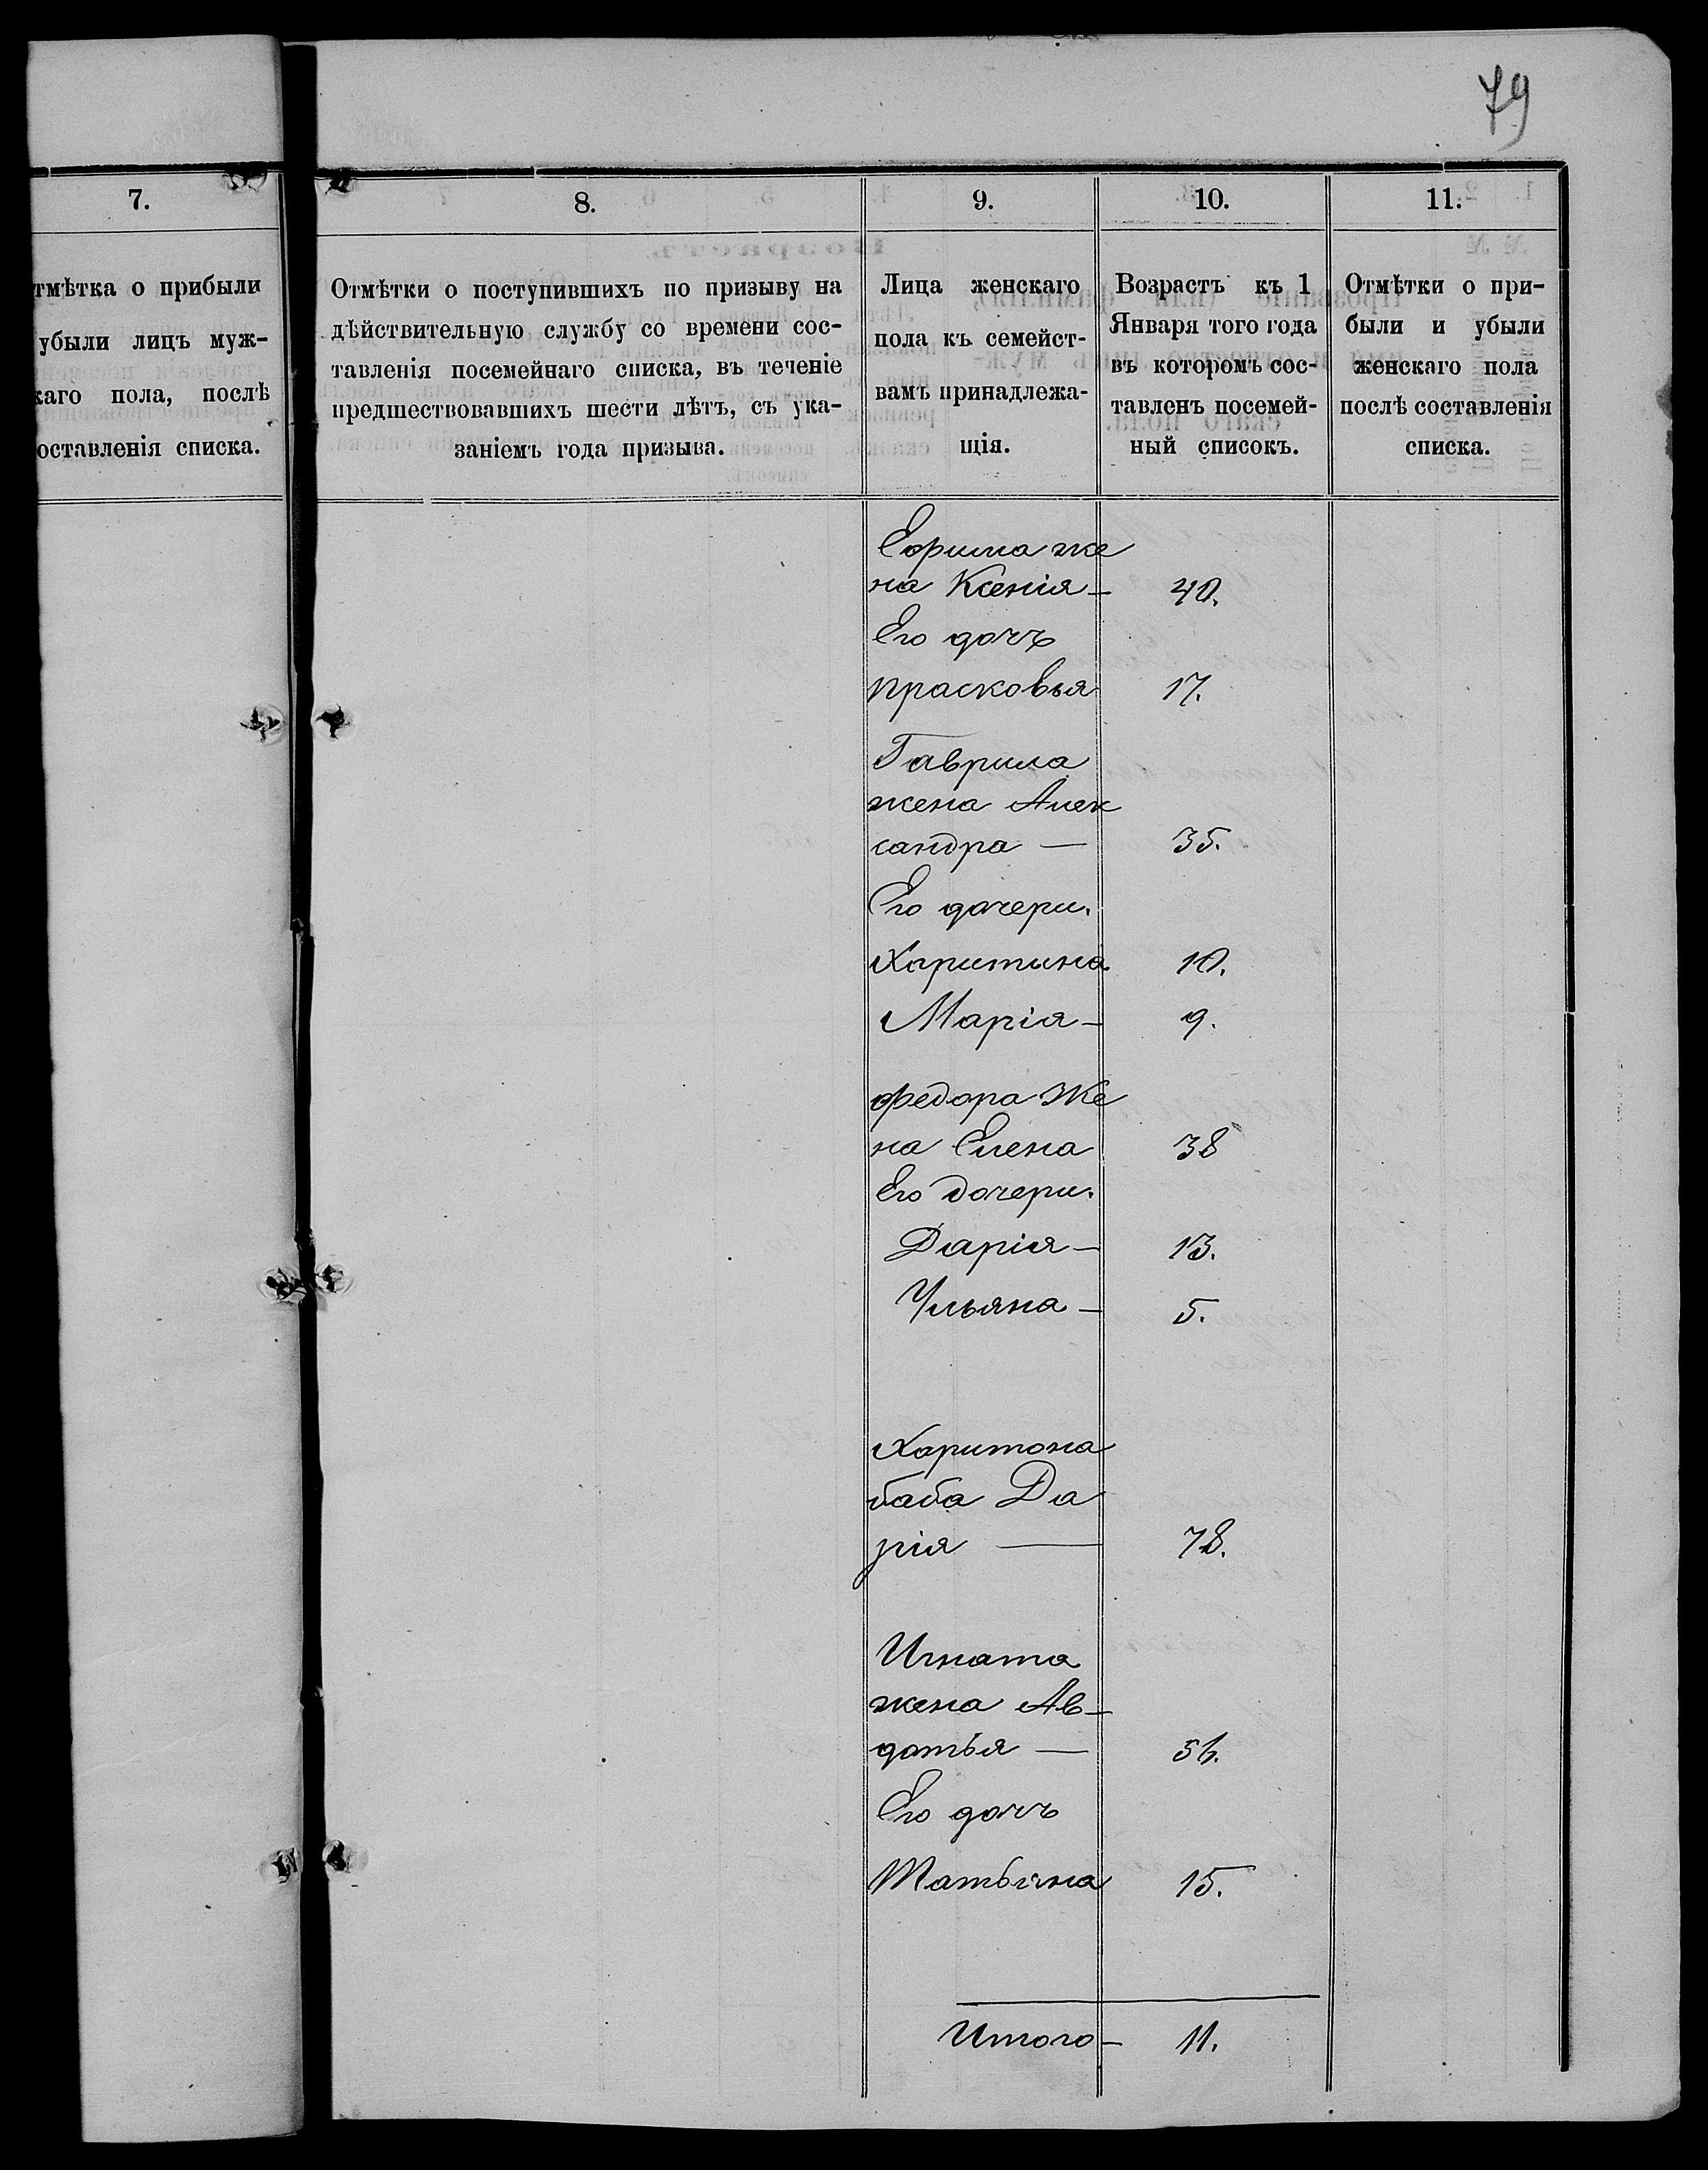 79
7.
8.
9.
10.
11.
тмѣтка о прибыли
убыли лицъ муж-
каго пола, послѣ
оставленія списка.
Отмѣтки о поступившихъ по призыву на
дѣйствительную службу со времени сос-
тавленія посемейнаго списка, въ теченіе
предшествовавшихъ шести лѣтъ, съ ука-
заніемъ года призыва.
Лица женскаго
пола къ семейст-
вамъ принадлежа-
щія.
Возрастъ къ 1
Января того года
въ которомъ сос-
тавленъ посемей-
ный списокъ.
Отмѣтки о при-
были и убыли
женскаго пола
послѣ составленія
списка.
Ефима же
на Ксенія - 40.
Его дочъ
Прасковья 17.
Гаврила
жена Алек
сандра — 35.
Его дочери.
Харитина 10.
Марія - 9.
Федора Же
на Елена 38
Его дочери.
Дарія - 13.
Ульяна - 5.
Харитона
баба Да
рія — 78.
Игната
жена Ав-
дотья — 56.
Его дочъ
Татьяна 15.
Итого - 11.